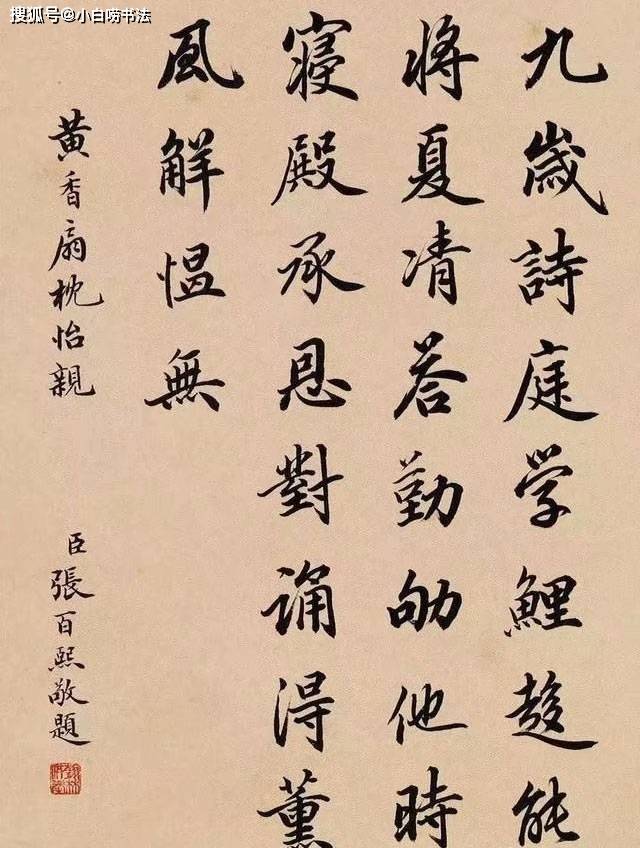 搜狐号@小白唠书法
九歲詩庭学鯉趍能
将夏凊荅勤劬他時
寝殿承恩對誦得薰
風解愠無
黄香扇枕怡親
臣張百熙敬題